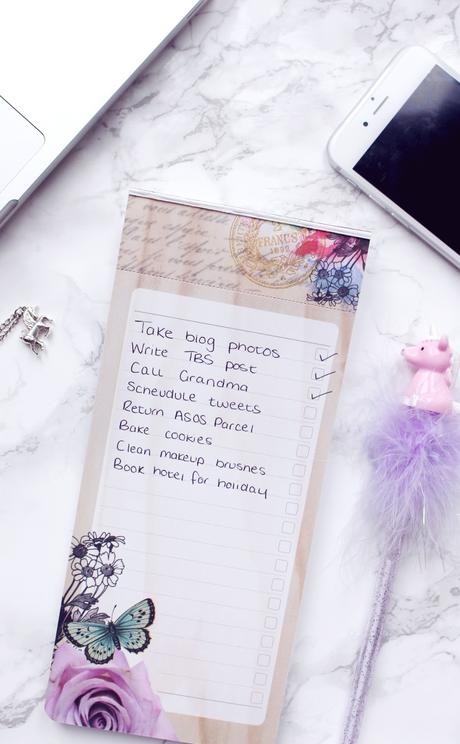 FRANCS
Take blog photos
Write TBS post
Call Grandma
Scheudule tweets
Return ASOS Parcel
Bake cookies
Clean makeup brushes
Book hotel for holiday